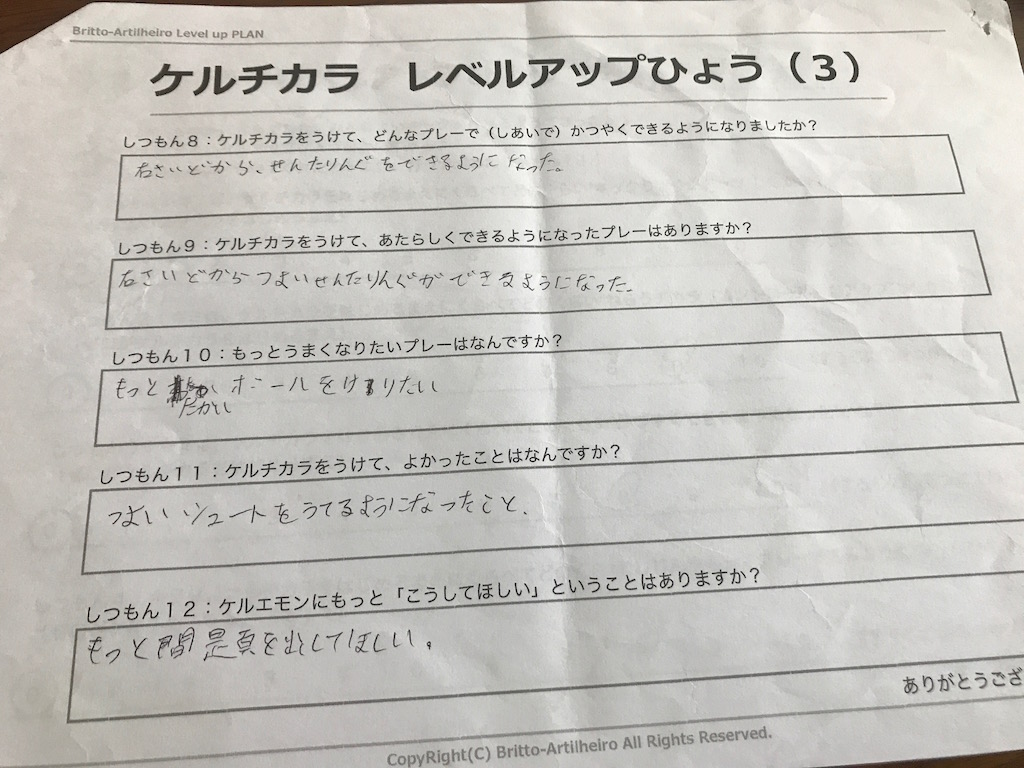 Britto-Artilheiro Level up PLAN
ケルチカラ　レベルアップひょう（３）
しつもん８：ケルチカラをうけて、どんなプレーで（しあいで）かつやくできるようになりましたか？
右さいどから、せんたりんぐをできるようになった。
しつもん９：ケルチカラをうけて、あたらしくできるようになったプレーはありますか？
右さいどからつよいせんたりんぐができるようになった。
しつもん１０：もっとうまくなりたいプレーはなんですか？
もっと ボールをけりたい
たかい
しつもん１１：ケルチカラをうけて、よかったことはなんですか？
つよいシュートをうてるようになったこと、
しつもん１２：ケルエモンにもっと「こうしてほしい」ということはありますか？
もっと問題を出してほしい。
ありがとうござ
CopyRight(C) Britto-Artilheiro All Rights Reserved.